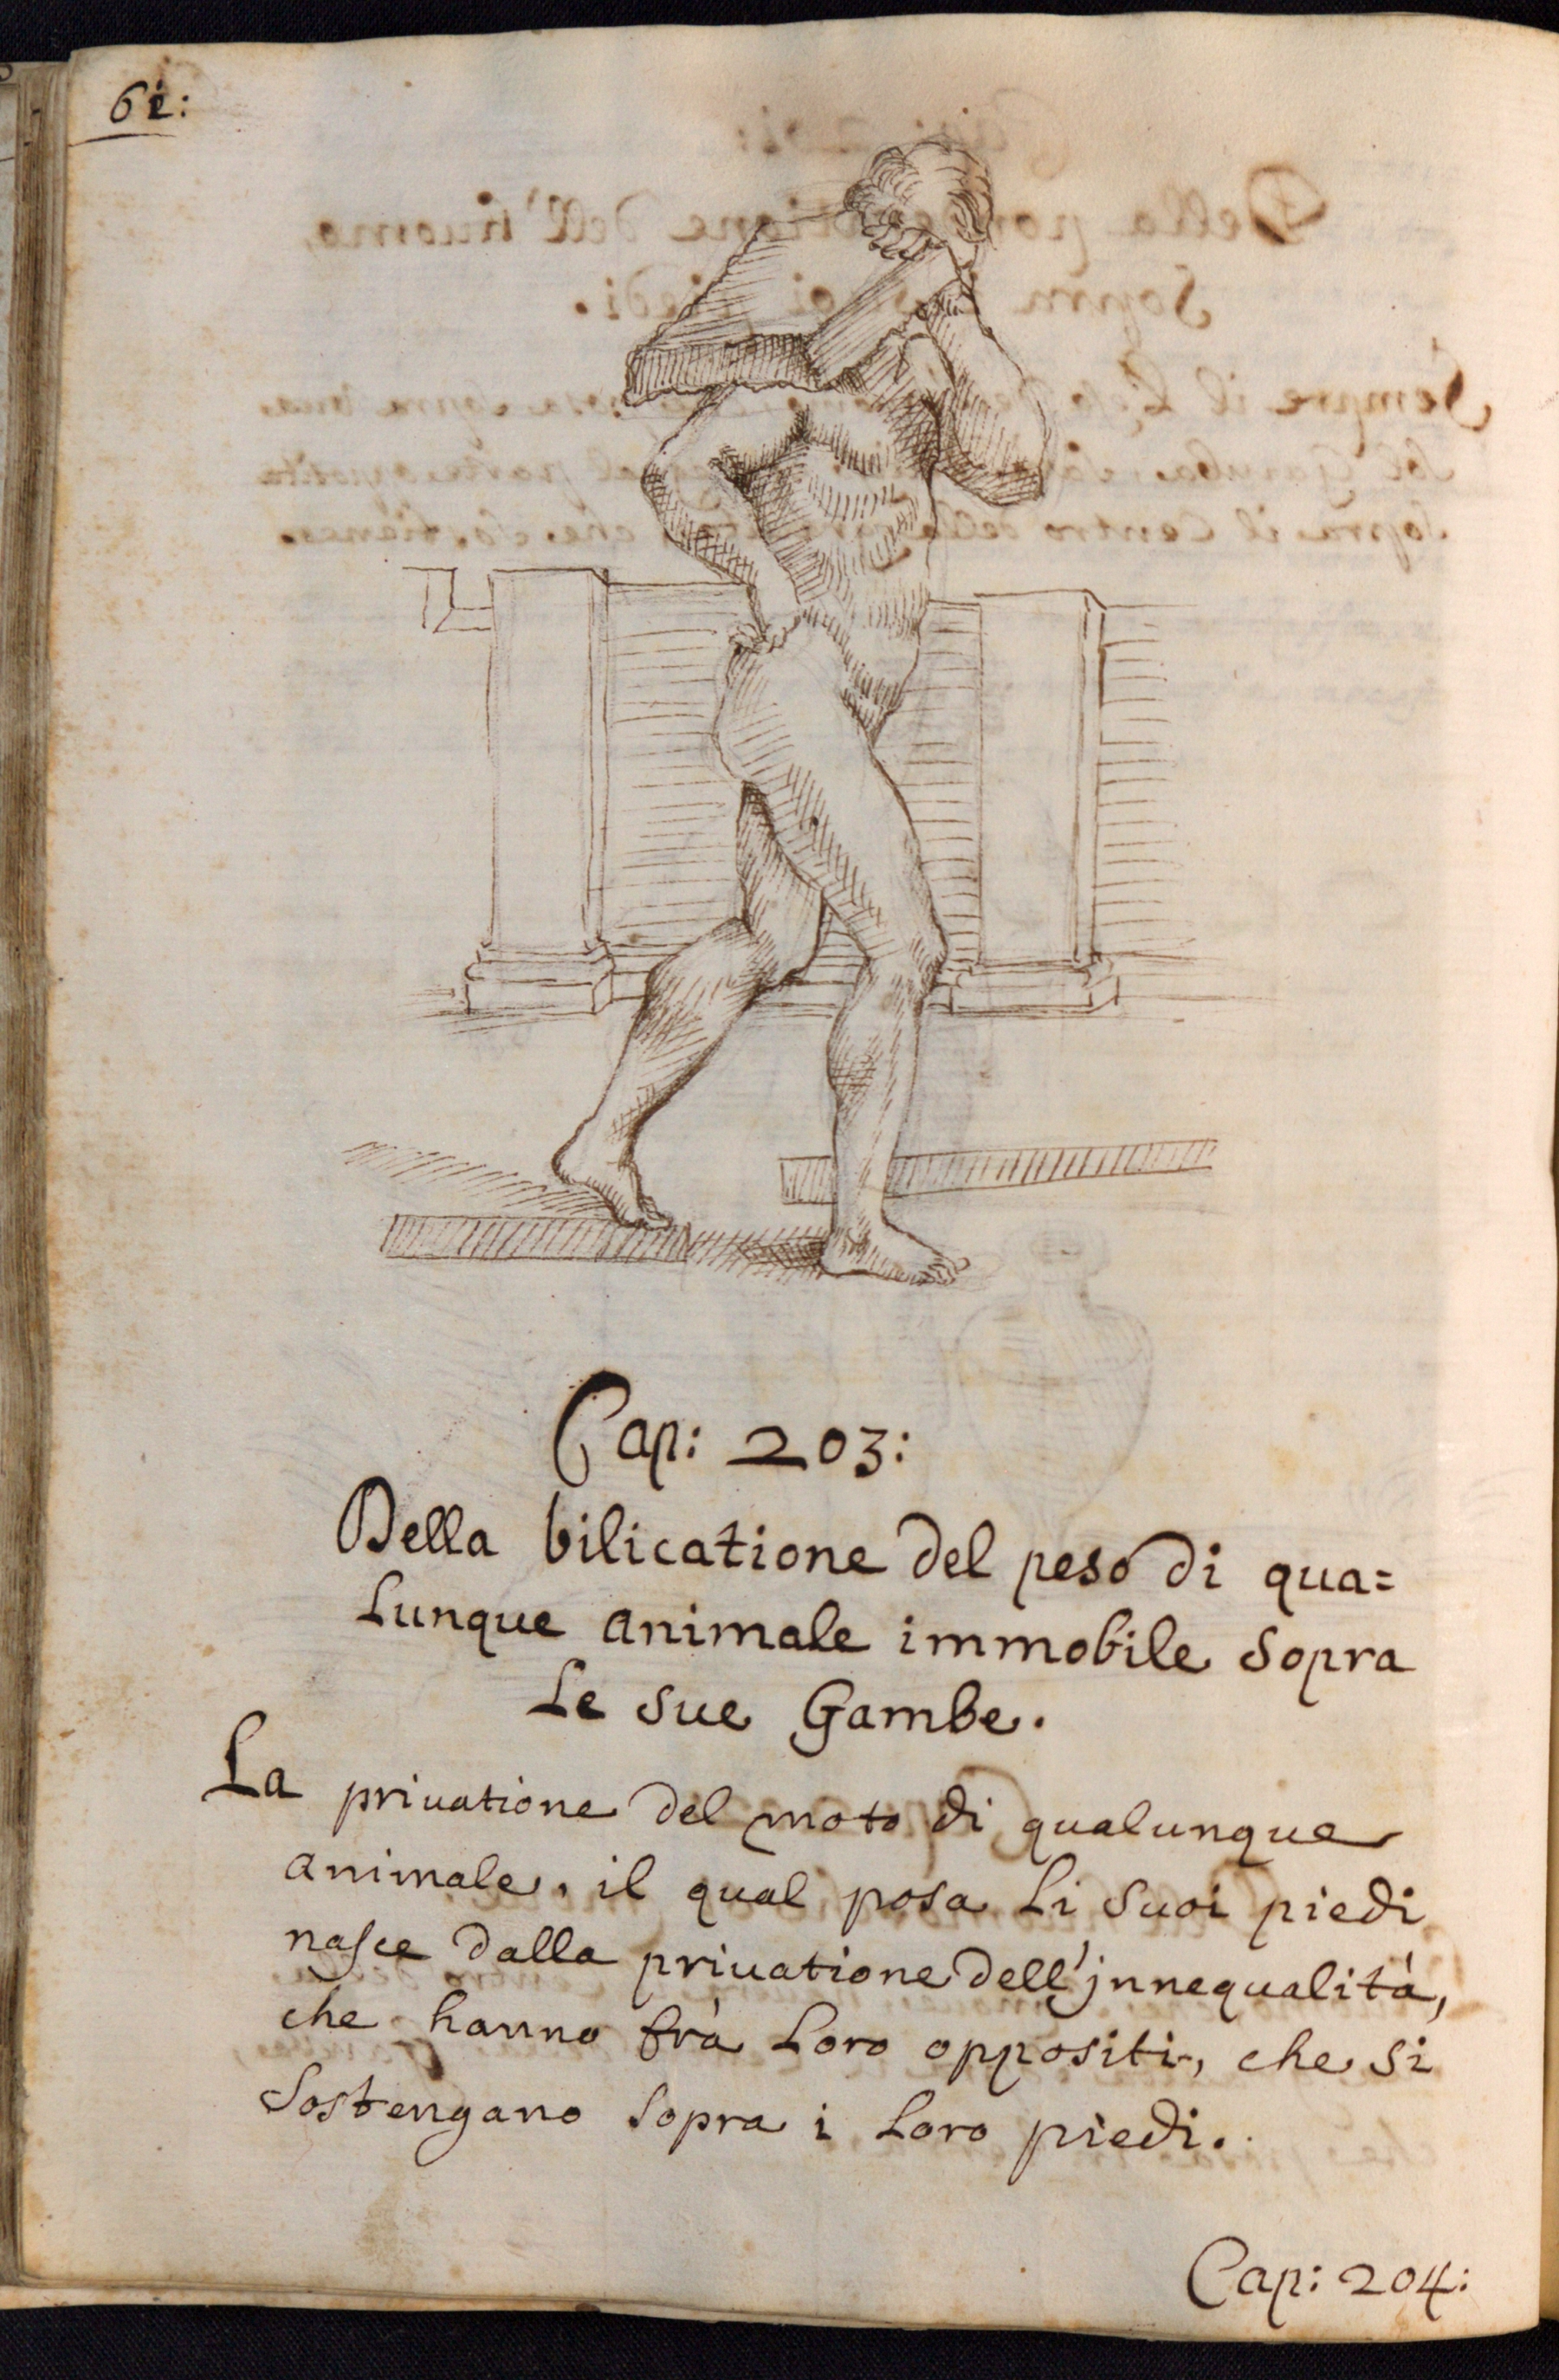 61:
Cap: 203:
Della bilicatione del peso di qua=
lunque animale immobile sopra
le sue Gambe.
La priuatione del moto di qualunque
animale, il qual posa li suoi piedi
nasce dalla priuatione dell'jnnequalità,
che hanno frà loro oppositi, che si
sostengano sopra i loro piedi.
Cap: 204: